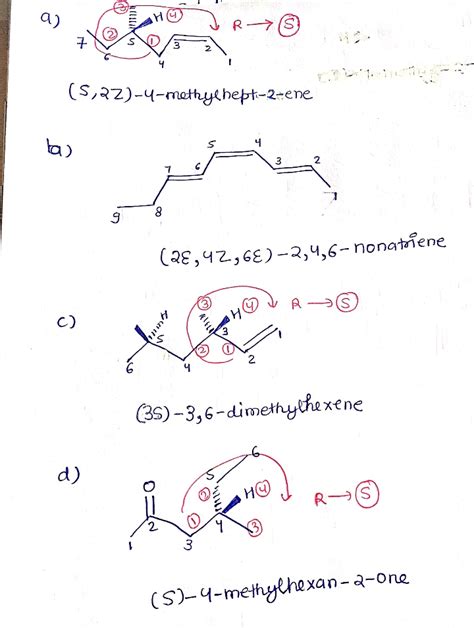 a)
③
H ④
R → Ⓢ
② ①
7 6 5 4 3 2 1
(S,2Z)-4-methylhept-2-ene
ba)
5 4
7 6 3 2
9 8 1
(2E,4Z,6E)-2,4,6-nonatriene
c)
H ③ H ④ R → Ⓢ
5 3 1
② ①
6 4 2
(3S)-3,6-dimethylhexene
d)
6
O 5
② H ④ R → Ⓢ
2 ① 4 ③
1 3
(S)-4-methylhexan-2-one